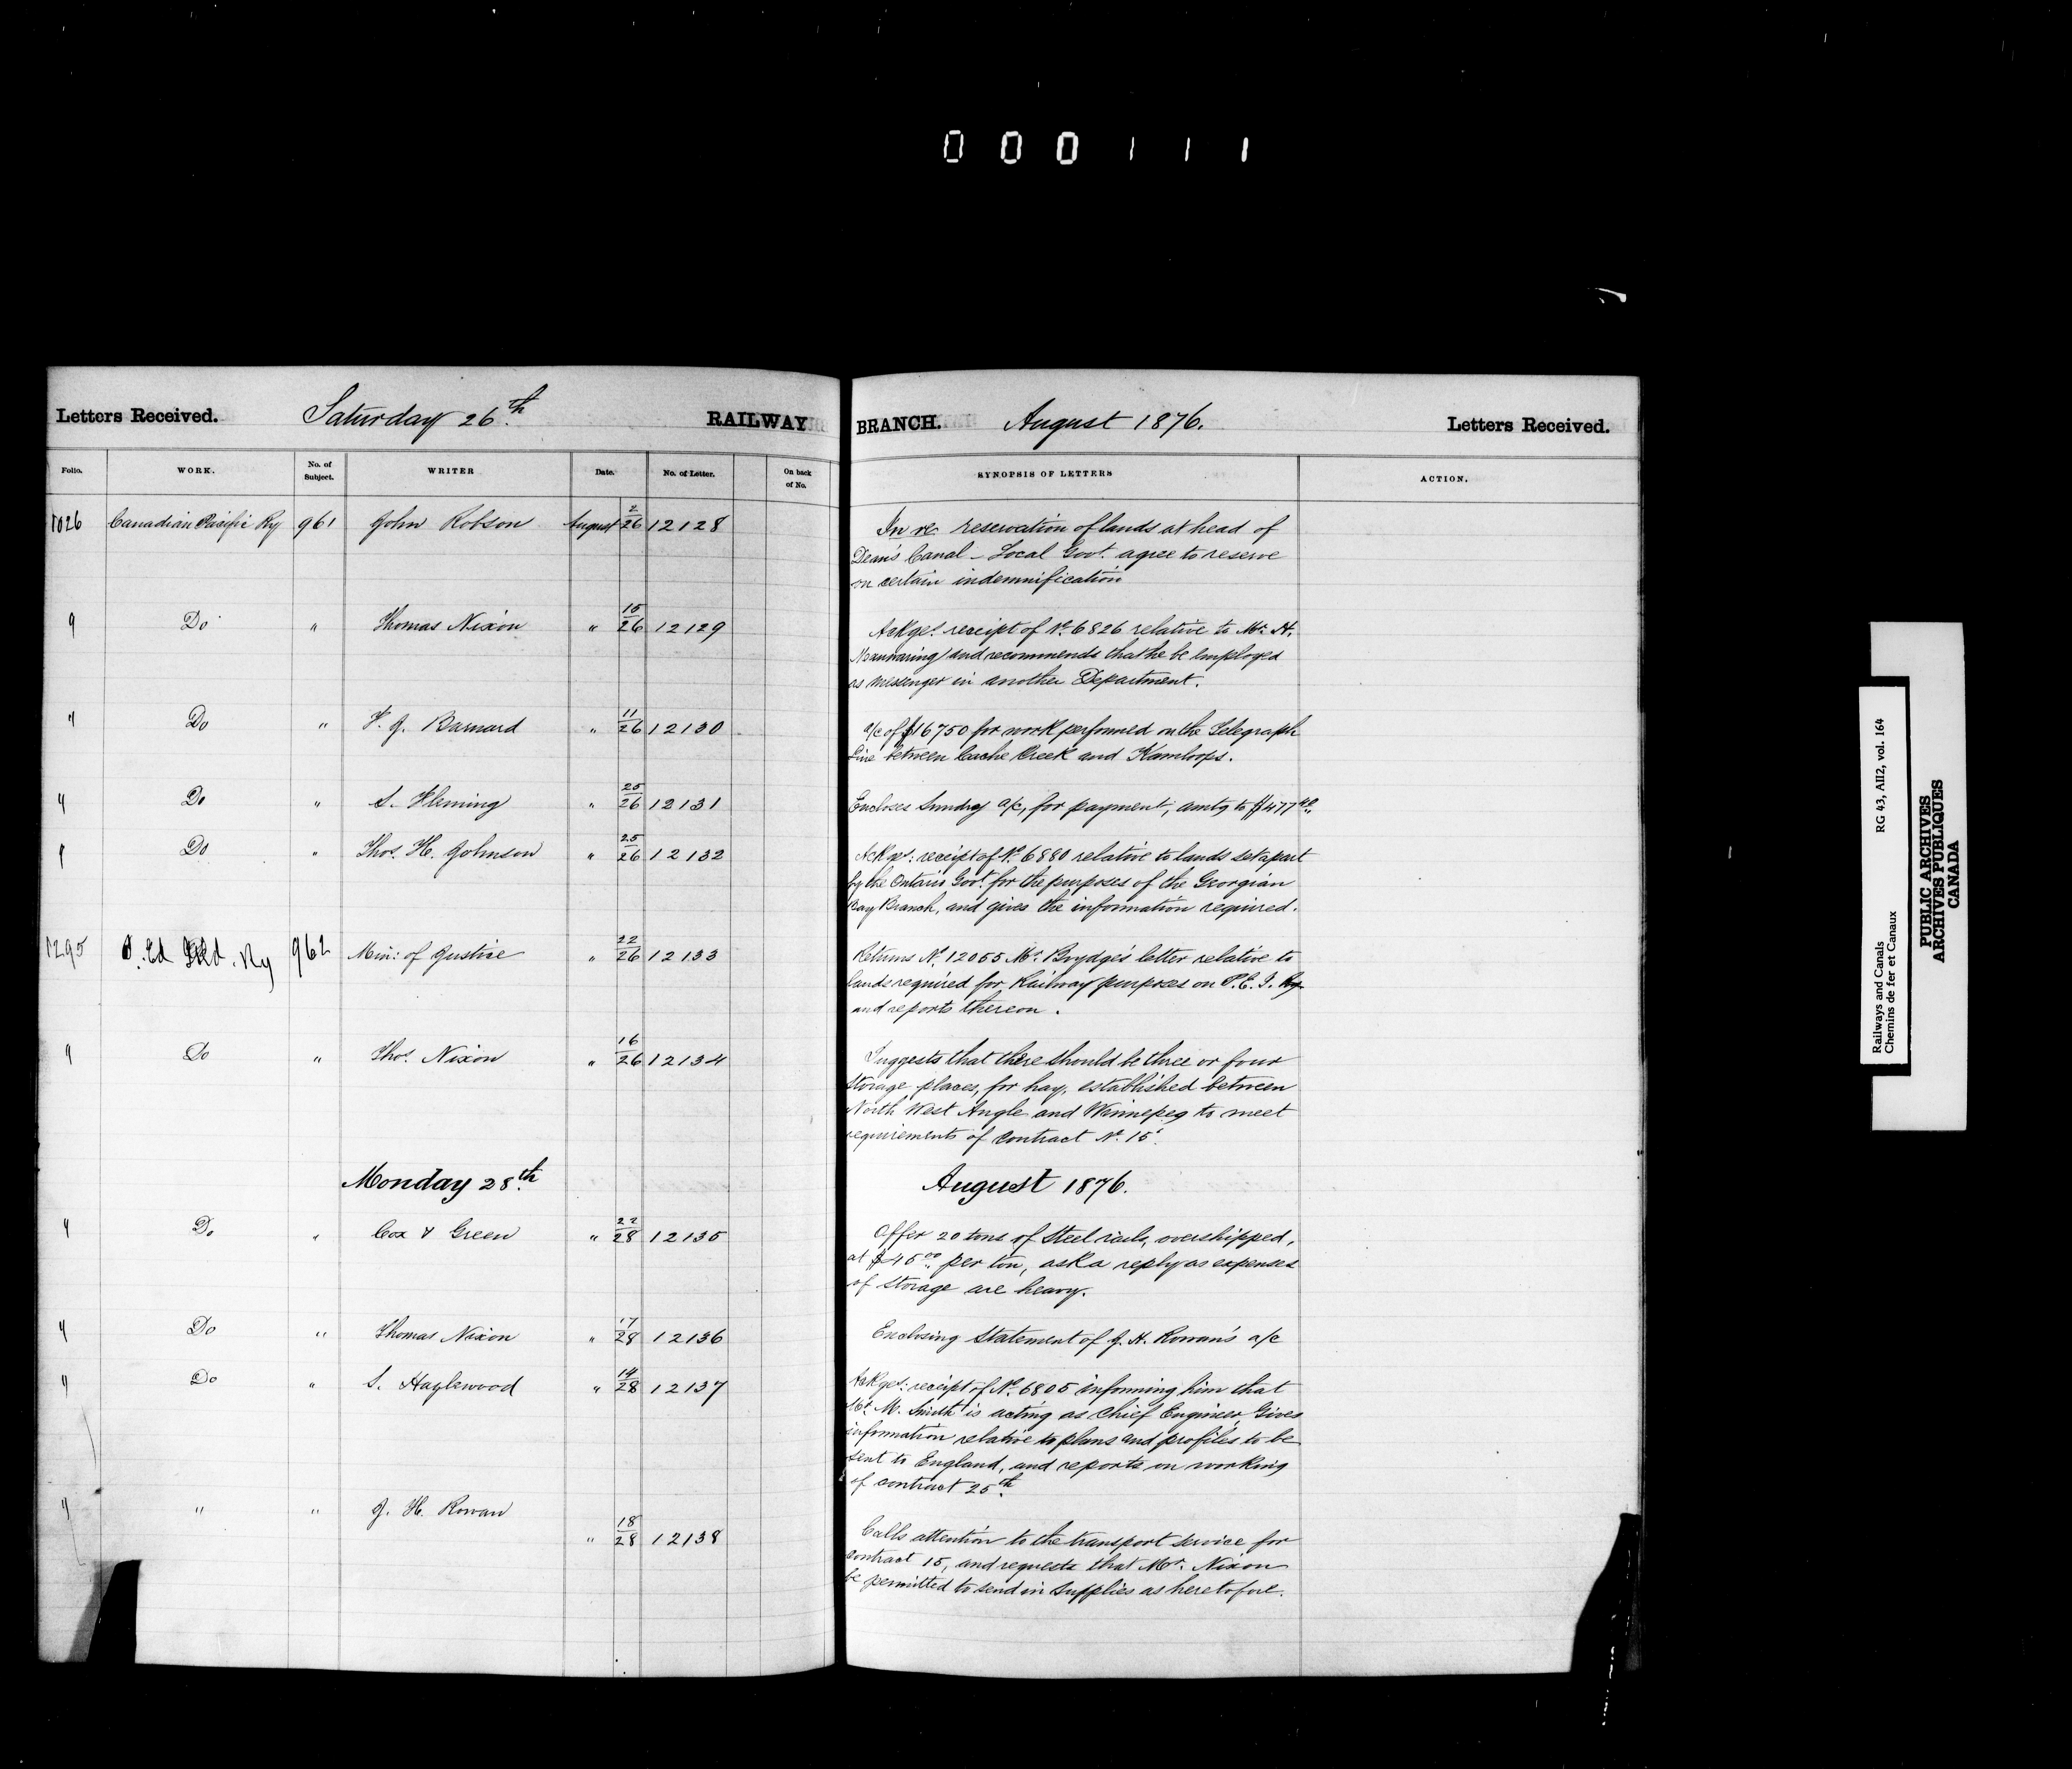 000111
Letters Received. Saturday 26th. RAILWAY BRANCH. August 1876. Letters Received.
Folio. WORK. No. of Subject. WRITER Date. No. of Letter. On back of No. SYNOPSIS OF LETTERS ACTION.
Canadian Pacific Ry 961 John Robson August 2/26 12128 In re. reservation of lands at head of
Dean's Canal - Local Govt. agree to reserve
on certain indemnification
" Do " Thomas Nixon " 15/26 12129 Ackges. receipt of No. 6826 relative to Mr. H.
and recommends that he be employed
as messenger in another Department.
" Do " F. J. Barnard " 11/26 12130 a/c of $16750 for work performed on the Telegraph
Line between Cache Creek and Kamloops.
" Do " S. Fleming " 25/26 12131 Encloses Sundry a/c, for payment, amtg to $477
" Do " Thos. H. Johnson " 25/26 12132 Ackges: receipt of No. 6880 relative to lands set apart
by the Ontario Govt. for the purposes of the Georgian
Bay Branch, and gives the information required.
P. Ed Isld. Ry 962 Min: of Justice " 22/26 12133 Returns No. 12055 Mr. Brydge's letter relative to
lands required for Railway purposes on P.E.I. Ry.
and reports thereon.
" Do " Thos. Nixon " 16/26 12134 Suggests that there should be three or four
storage places, for hay, established between
North West Angle and Winnepeg to meet
requirements of contract No. 15.
Monday 28th. August 1876.
" Do " Cox & Green " 22/28 12135 Offer 20 tons of Steel rails, overshipped,
at $45.00 per ton, ask a reply as expenses
of storage are heavy.
" Do " Thomas Nixon " 17/28 12136 Enclosing Statement of J. H. Rowan's a/c
" Do " S. Haylewood " 14/28 12137 Ackges: receipt of No. 6805 informing him that
Mr. M. Smith is acting as Chief Engineer, Gives
information relative to plans and profiles to be
sent to England, and reports on working
of contract 25th.
" " " J. H. Rowan " 18/28 12138 Calls attention to the transport service for
contract 15, and requests that Mr. Nixon
be permitted to send in supplies as heretofore.
Railways and Canals RG 43, AII2, vol. 164
Chemins de fer et Canaux
PUBLIC ARCHIVES
ARCHIVES PUBLIQUES
CANADA